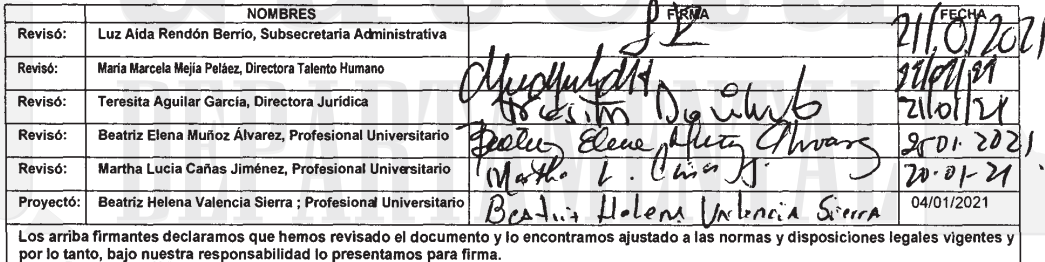 NOMBRES FIRMA FECHA
Revisó: Luz Aída Rendón Berrío, Subsecretaria Administrativa
Revisó: María Marcela Mejía Peláez, Directora Talento Humano
Revisó: Teresita Aguilar García, Directora Jurídica Teresita 21/01/21
Revisó: Beatriz Elena Muñoz Álvarez, Profesional Universitario Beatriz Elena Muñoz Álvarez
Revisó: Martha Lucia Cañas Jiménez, Profesional Universitario Martha L. Cañas J. 20-01-21
Proyectó: Beatriz Helena Valencia Sierra ; Profesional Universitario Beatriz Helena Valencia Sierra 04/01/2021
Los arriba firmantes declaramos que hemos revisado el documento y lo encontramos ajustado a las normas y disposiciones legales vigentes y
por lo tanto, bajo nuestra responsabilidad lo presentamos para firma.